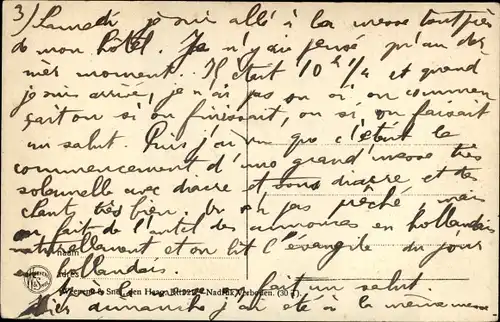 3) Samedi je suis allé à la messe tout près
de mon hôtel. Je n'y ai pensé qu'au der-
nier moment. Il était 10 h 1/4 et quand
je suis arrivé, je n'ai pas su si on commen
çait ou si on finissait, ou si on faisait
un salut. Puis j'ai vu que c'était le
commencement d'une grand'messe très
solennelle avec diacre et sous diacre et des
chants très bien. On n'a pas prêché, mais
on fait de l'autel des annonces en hollandais
naturellement et on lit l'évangile du jour
en hollandais.
naam
adres
fait un salut.
Weenenk & Snel, den Haag. Nadruk Verboden. (30
dimanche j'ai été à la même messe